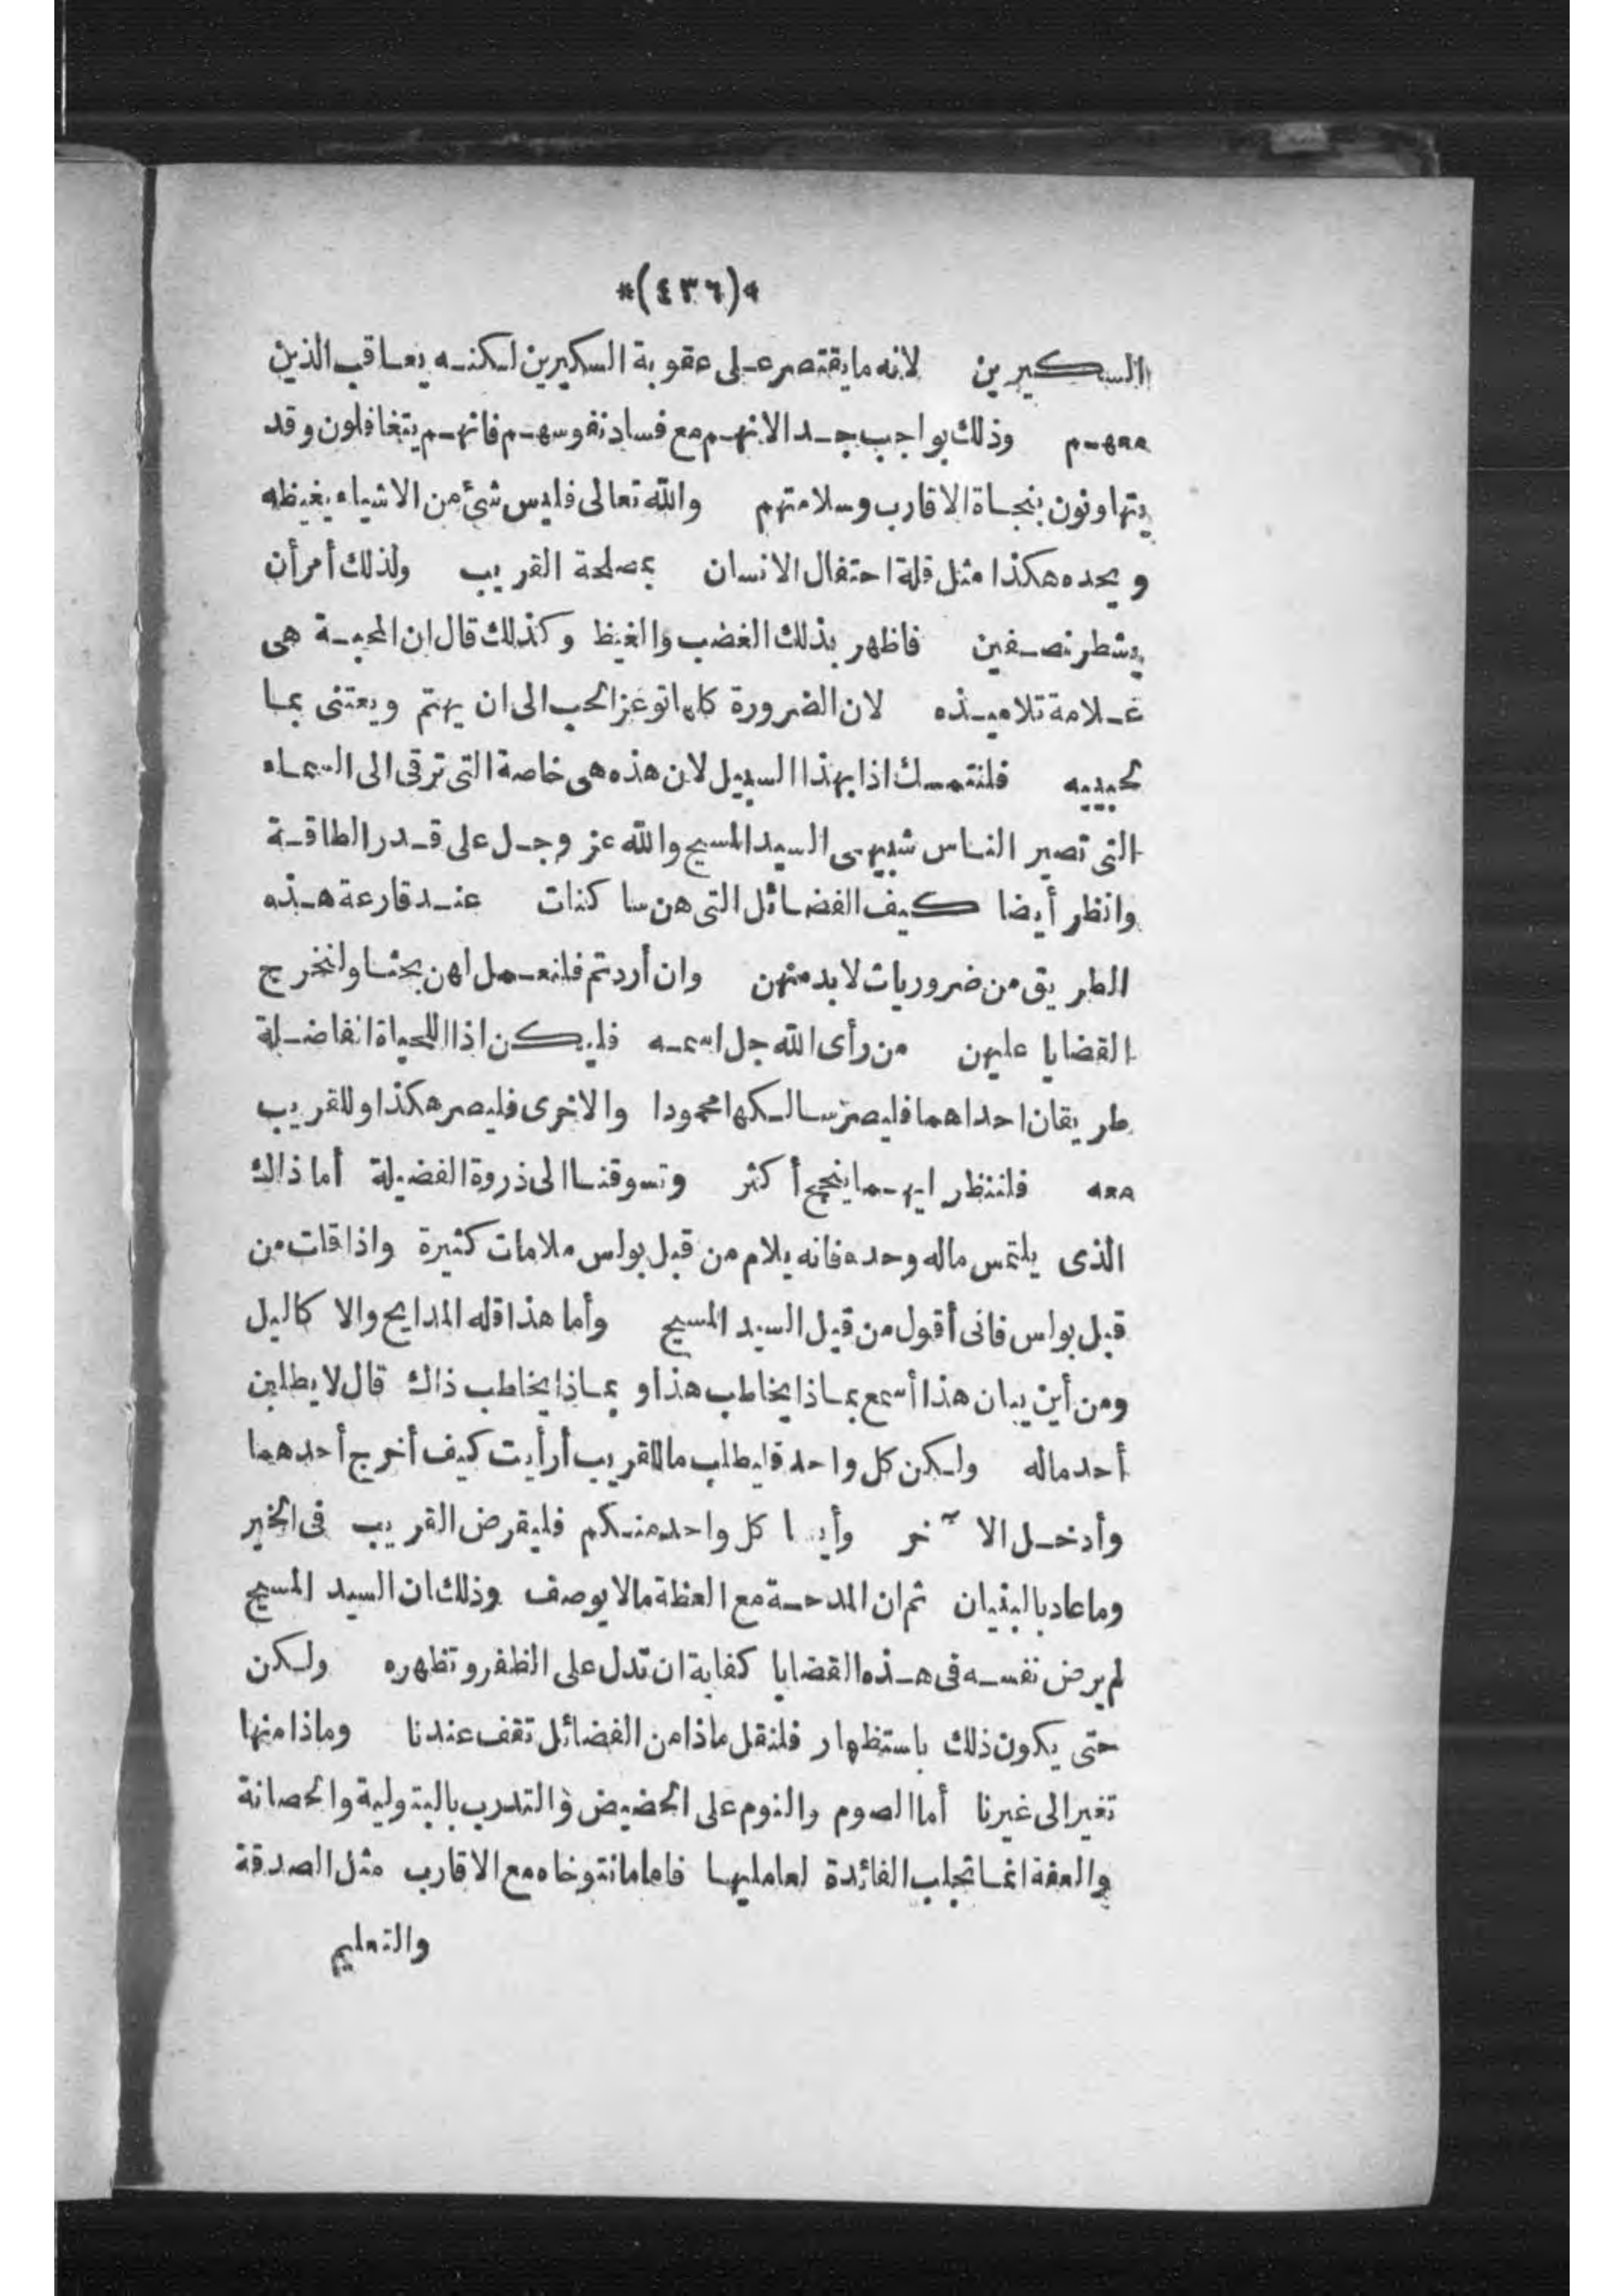 *(٤٣٦)*
السكيرين لانه ما يقتصر على عقوبة السكيرين لكنه يعاقب الذين
معهم وذلك بواجب جدا لانهم مع فساد نفوسهم فانهم يتغافلون وقد
يتهاونون بنجاة الاقارب وسلامتهم والله تعالى فليس شئ من الاشياء يغيظه
ويحده هكذا مثل قلة احتفال الانسان بمصلحة القريب ولذلك أمر أن
يشطر نصفين فاظهر بذلك الغضب والغيظ وكذلك قال ان المحبة هى
علامة تلاميذه لان الضرورة كلها توعز الحب الى ان يهتم ويعتنى بما
لحبيبه فلنتمسك اذا بهذا السبيل لان هذه هى خاصة التى ترقى الى السماء
التى تصير الناس شبيهى السيد المسيح والله عز وجل على قدر الطاقة
وانظر أيضا كيف الفضائل التى هن ساكنات عند قارعة هذه
الطريق من ضروريات لابد منهن وان أردتم فلنعمل لهن بحثا ولنخرج
القضايا عليهن من رأى الله جل اسمه فليكن اذا للحياة الفاضلة
طريقان احداهما فليصر سالكها محمودا والاخرى فليصر هكذا وللقريب
معه فلننظر ايهما ينجح أكثر وتسوقنا الى ذروة الفضيلة أما ذاك
الذى يلتمس ماله وحده فانه يلام من قبل بولس ملامات كثيرة واذا قلت من
قبل بولس فانى أقول من قبل السيد المسيح وأما هذا فله المدايح والاكاليل
ومن أين يبان هذا أسمع بماذا يخاطب هذا وبماذا يخاطب ذاك قال لا يطلبن
أحد ماله ولكن كل واحد فليطلب ما للقريب أرأيت كيف أخرج أحدهما
وأدخل الآخر وأيضا كل واحد منكم فليقرض القريب فى الخير
وما عاد بالبنيان ثم ان المدحة مع العظة مالا يوصف وذلك ان السيد المسيح
لم يرض نفسه فى هذه القضايا كفاية ان تدل على الظفر وتظهره ولكن
حتى يكون ذلك باستظهار فلنقل ماذا من الفضائل تقف عندنا وماذا منها
تغير الى غيرنا أما الصوم والنوم على الحضيض والتدرب بالبتولية والحصانة
والعفة انما تجلب الفائدة لعامليها فاما ما نتوخاه مع الاقارب مثل الصدقة
والتعليم